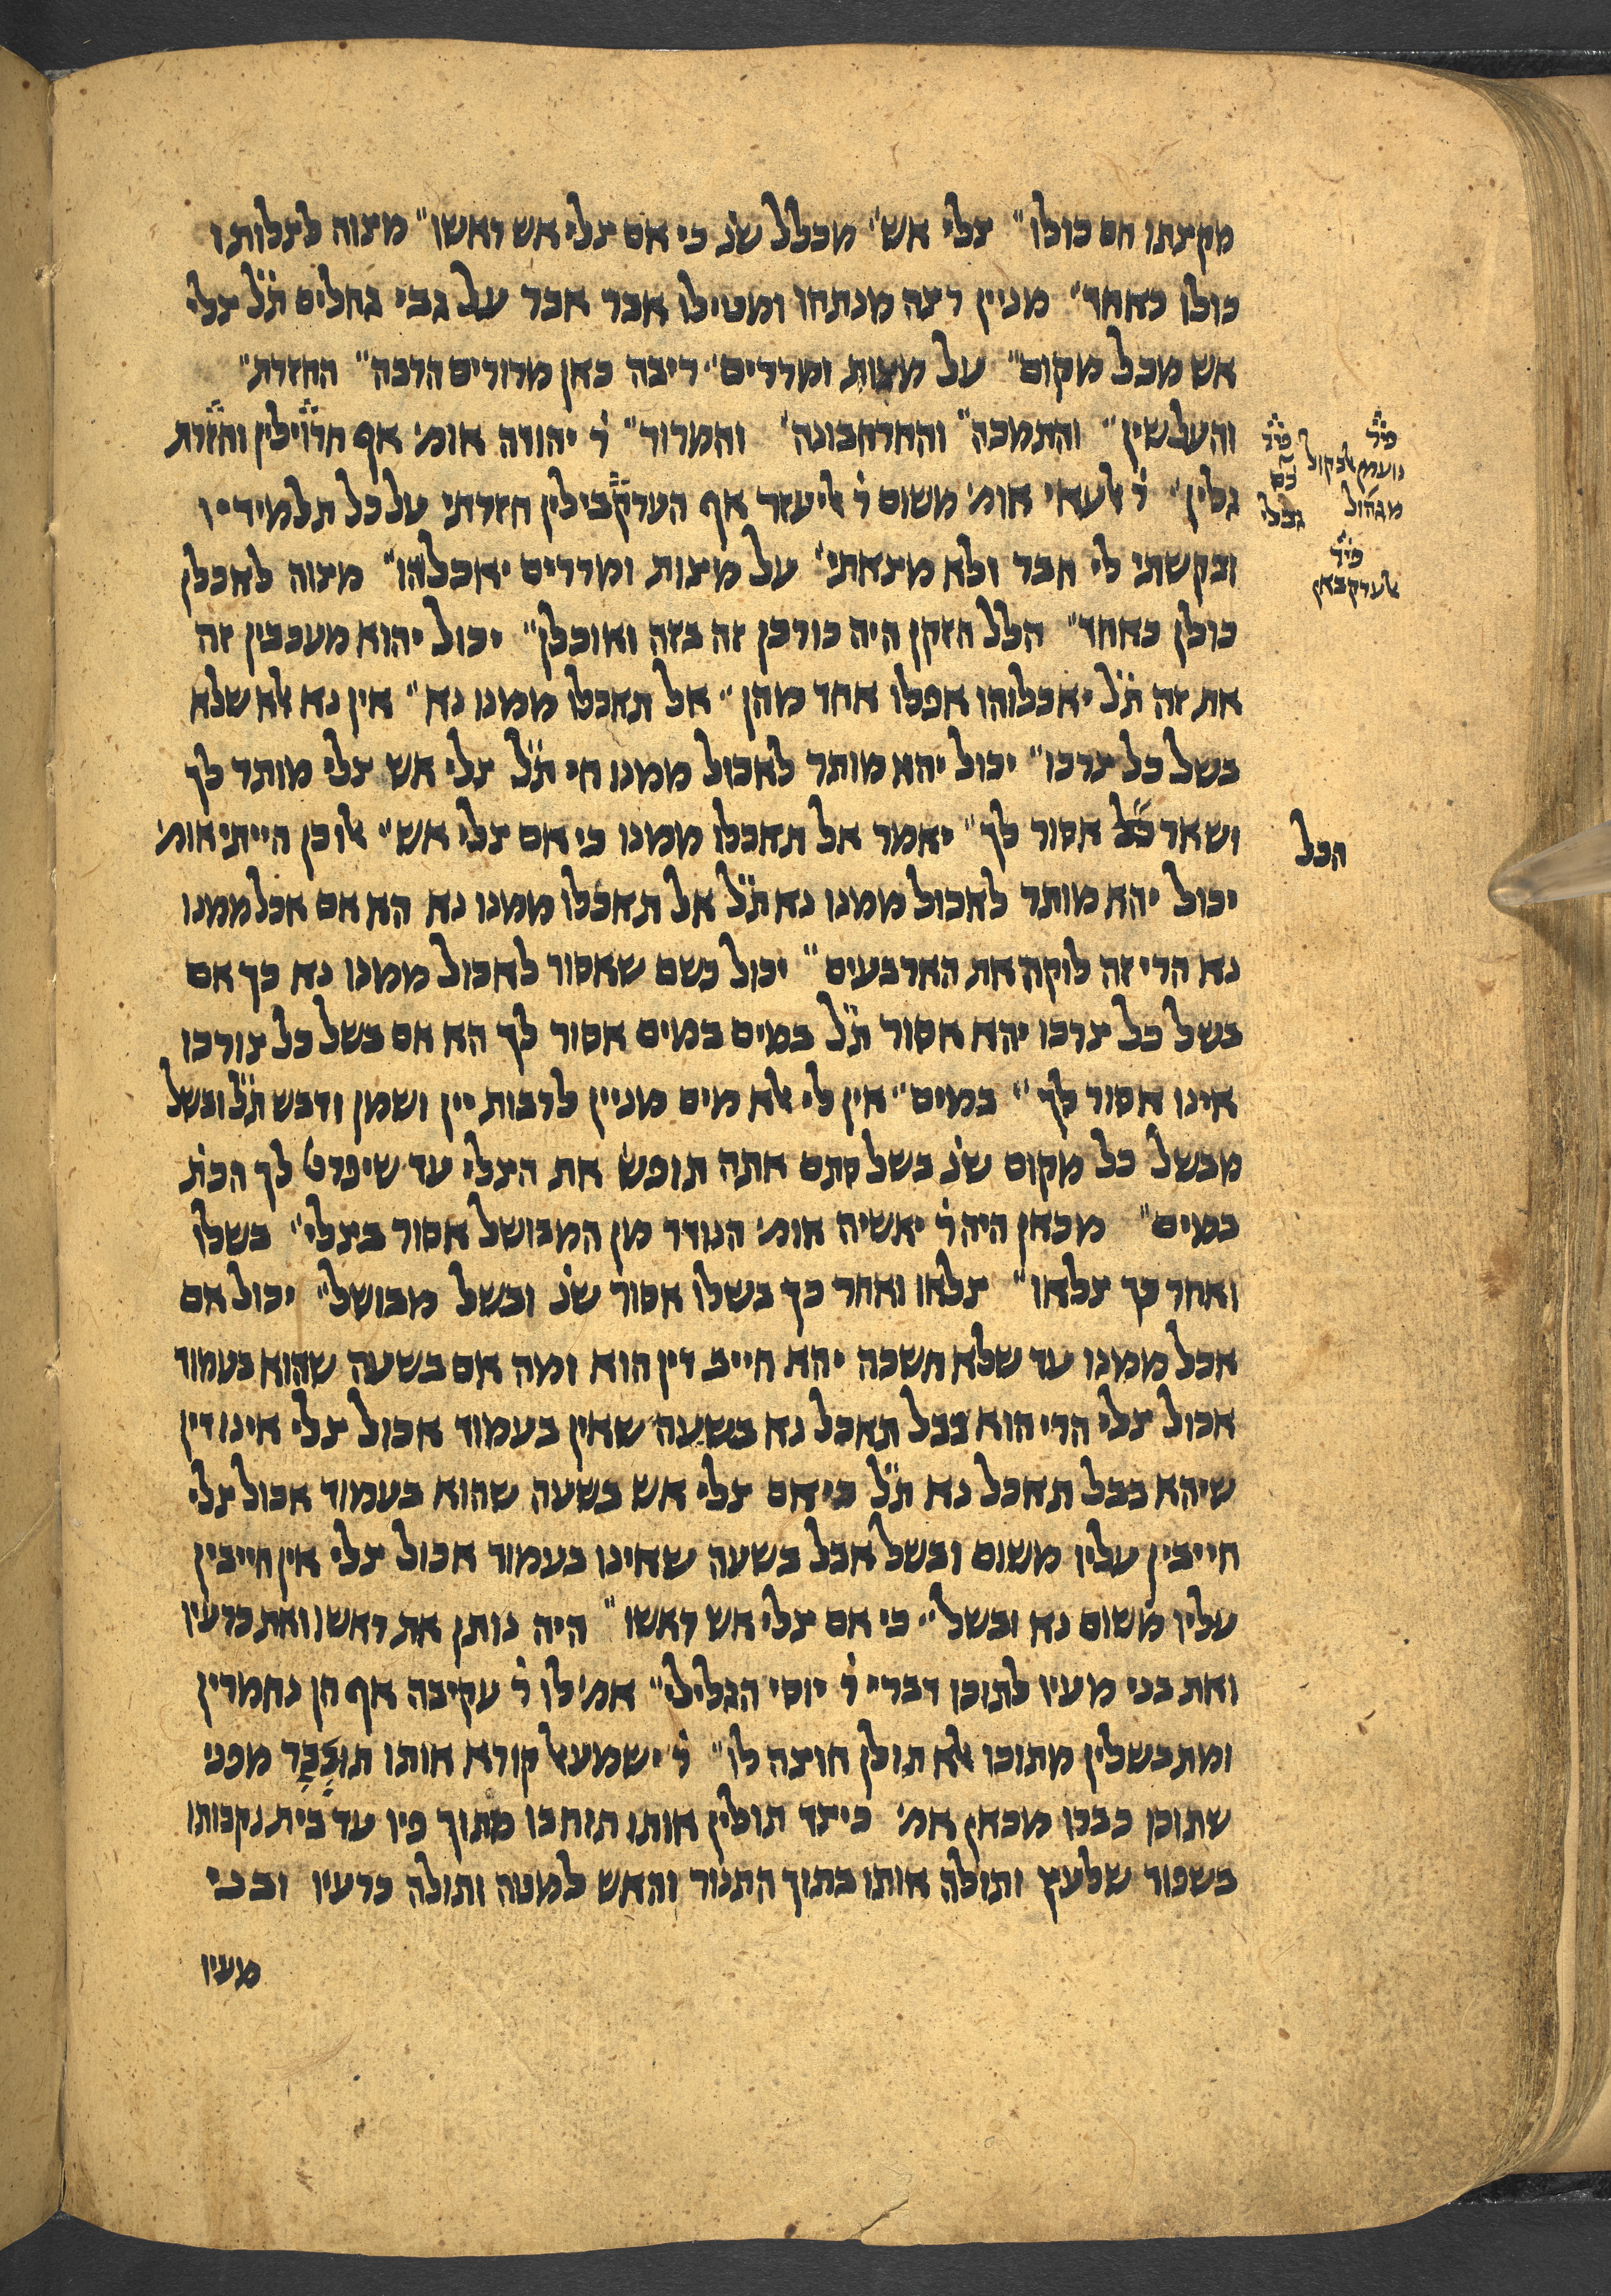 מקצתו חם כולו״ צלי אש״ מכלל שנ׳ כי אם צלי אש ראשו״ מצוה לצלותו
כולו כאחד״ מניין רצה מנתחו ומטילו אבר אבר על גבי גחלים ת״ל צלי
אש מכל מקום״ על מצות ומררים״ ריבה כאן מרורים הרבה״ החזרת״
והעלשין״ והתמכה״ והחרחבונה״ והמרור״ ר׳ יהודה אומ׳ אף חרוילין וחזרת
גלין״ ר׳ אלעאי אומ׳ משום ר׳ אליעזר אף הערקבילין חזרתי על כל תלמידיו
ובקשתי לי חבר ולא מצאתי״ על מצות ומררים יאכלהו״ מצוה לאכלן
כולן כאחד״ הלל הזקן היה כורכן זה בזה ואוכלן״ יכול יהוא מעכבין זה
את זה ת״ל יאכלוהו אפלו אחד מהן״ אל תאכלו ממנו נא״ אין נא אלא שלא
בשל כל צרכו״ יכול יהא מותר לאכול ממנו חי ת״ל צלי אש צלי מותר לך
ושאר כל אסור לך״ יאמר אל תאכלו ממנו כי אם צלי אש״ אלו כן הייתי אומ׳
יכול יהא מותר לאכול ממנו נא ת״ל אל תאכלו ממנו נא הא אם אכל ממנו
נא הרי זה לוקה את הארבעים״ יכול כשם שאסור לאכול ממנו נא כך אם
בשל כל צרכו יהא אסור ת״ל במים במים אסור לך הא אם בשל כל צורכו
אינו אסור לך״ במים״ אין לי אלא מים מניין לרבות יין ושמן ודבש ת״ל ובשל
מבשל כל מקום שנ׳ בשל סתם אתה תופש את הצלי עד שיפרט לך הכת׳
במים״ מכאן היה ר׳ יאשיה אומ׳ הנודר מן המבושל אסור בצלי״ בשלו
ואחר כך צלאו״ צלאו ואחר כך בשלו אסור שנ׳ ובשל מבושל״ יכול אם
אכל ממנו עד שלא חשכה יהא חייב דין הוא ומה אם בשעה שהוא בעמוד
אכול צלי הרי הוא בבל תאכל נא בשעה שאין בעמוד אכול צלי אינו דין
שיהא בבל תאכל נא ת״ל כי אם צלי אש בשעה שהוא בעמוד אכול צלי
חייבין עליו משום ובשל אבל בשעה שאינו בעמוד אכול צלי אין חייבין
עליו משום נא ובשל״ כי אם צלי אש ראשו״ היה נותן את ראשו ואת כרעיו
ואת בני מעיו לתוכו דברי ר׳ יוסי הגלילי״ אמ׳ לו ר׳ עקיבה אף הן נחמרין
ומתבשלין מתוכו אלא תולן חוצה לו״ ר׳ ישמעאל קורא אותו תוכבר מפני
שתוכו כברו מכאן אמ׳ כיצד תולין אותו תוחבו מתוך פיו עד בית נקבותו
בשפוד שלעץ ותולה אותו בתוך התנור והאש למטה ותולה כרעיו ובני
מעיו
פי׳
מגהול
פי׳
הכל